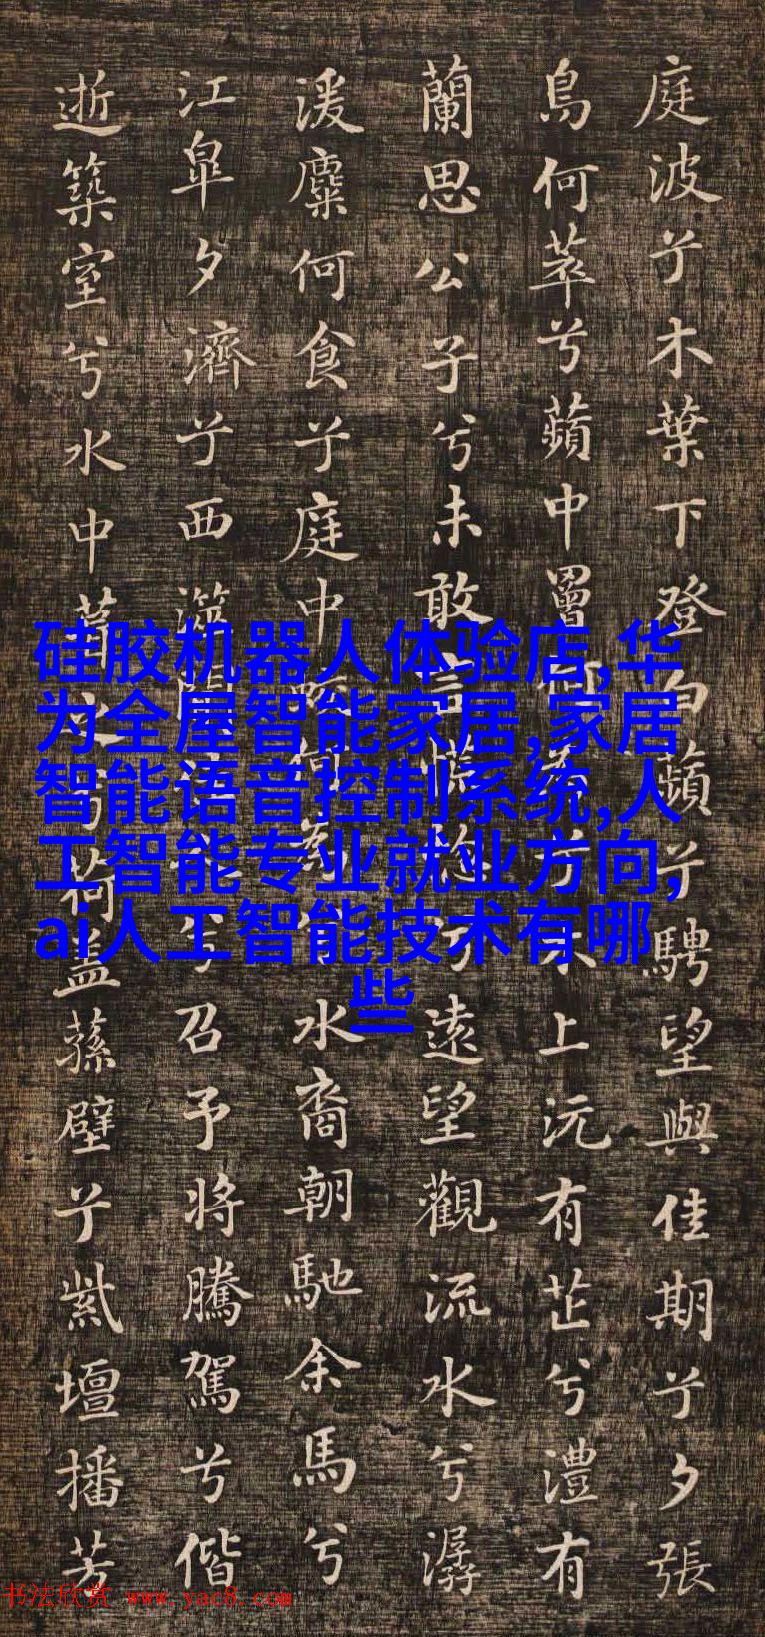 庭波兮木葉下登白蘋兮騁望與佳期兮夕張
鳥何萃兮蘋中罾何木上沅有芷兮澧有
蘭思公子兮未敢言遠望觀流水兮潺
湲麋何食兮庭中何為水裔朝馳余馬兮
江皋夕濟兮西澨兮召予將騰駕兮偕
逝築室兮水中葺荷蓋蓀壁兮紫壇播芳
硅胶机器人体验店,华
为全屋智能家居,家居
智能语音控制系统,人
工智能专业就业方向,
ai人工智能技术有哪
些
书法欣赏 www.yac8.com